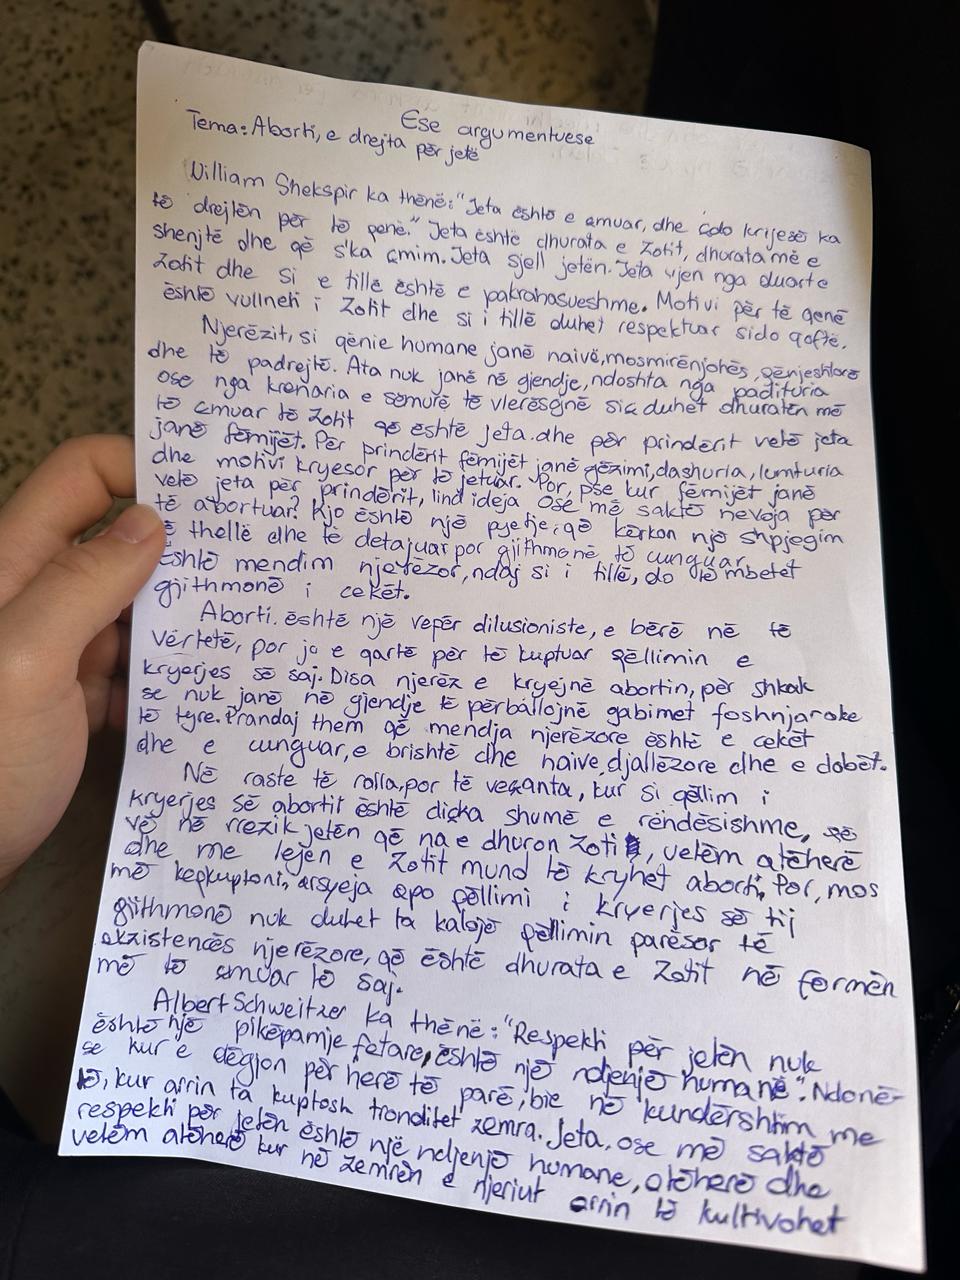 Ese argumentuese
Tema: Aborti, e drejta për jetë
William Shekspir ka thënë: "Jeta është e çmuar, dhe çdo krijesë ka
të drejtën për të qenë." Jeta është dhurata e Zotit, dhurata më e
shenjtë dhe që s'ka çmim. Jeta sjell jetën. Jeta vjen nga duart e
Zotit dhe si e tillë është e pakrahasueshme. Motivi për të qenë
është vullneti i Zotit dhe si i tillë duhet respektuar sido qoftë.
Njerëzit, si qënie humane janë naivë, mosmirënjohës, gënjeshtarë
dhe të padrejtë. Ata nuk janë në gjendje, ndoshta nga padituria
ose nga krenaria e sëmurë të vlerësojnë siç duhet dhuratën më
të çmuar të Zotit që është jeta. dhe për prindërit vetë jeta
janë fëmijët. Për prindërit fëmijët janë gëzimi, dashuria, lumturia
dhe motivi kryesor për të jetuar. Por, pse kur fëmijët janë
vetë jeta për prindërit, lind ideja ose më saktë nevoja për
të abortuar? Kjo është një pyetje, që kërkon një shpjegim
të thellë dhe të detajuar por gjithmonë të cunguar.
Është mendim njerëzor, ndaj si i tillë, do të mbetet
gjithmonë i cekët.
Aborti. është një vepër dilusioniste, e bërë në të
vërtetë, por jo e qartë për të kuptuar qëllimin e
kryerjes së saj. Disa njerëz e kryejnë abortin, për shkak
se nuk janë në gjendje të përballojnë gabimet foshnjarake
të tyre. Prandaj them që mendja njerëzore është e cekët
dhe e cunguar, e brishtë dhe naive, djallëzore dhe e dobët.
Në raste të rralla, por të veçanta, kur si qëllim i
kryerjes së abortit është diçka shumë e rëndësishme, që
vë në rrezik jetën që na e dhuron Zoti, vetëm atëherë
dhe me lejen e Zotit mund të kryhet aborti. Por, mos
më keqkuptoni, arsyeja apo qëllimi i kryerjes së tij
gjithmonë nuk duhet ta kalojë qëllimin parësor të
ekzistencës njerëzore, që është dhurata e Zotit në formën
më të çmuar të saj.
Albert Schweitzer ka thënë: "Respekti për jetën nuk
është një pikëpamje fetare, është një ndjenjë humane". Ndonë-
se kur e dëgjon për herë të parë, bie në kundërshtim me
të, kur arrin ta kuptosh tronditet zemra. Jeta, ose më saktë
respekti për jetën është një ndjenjë humane, atëherë dhe
vetëm atëherë kur në zemrën e njeriut arrin të kultivohet